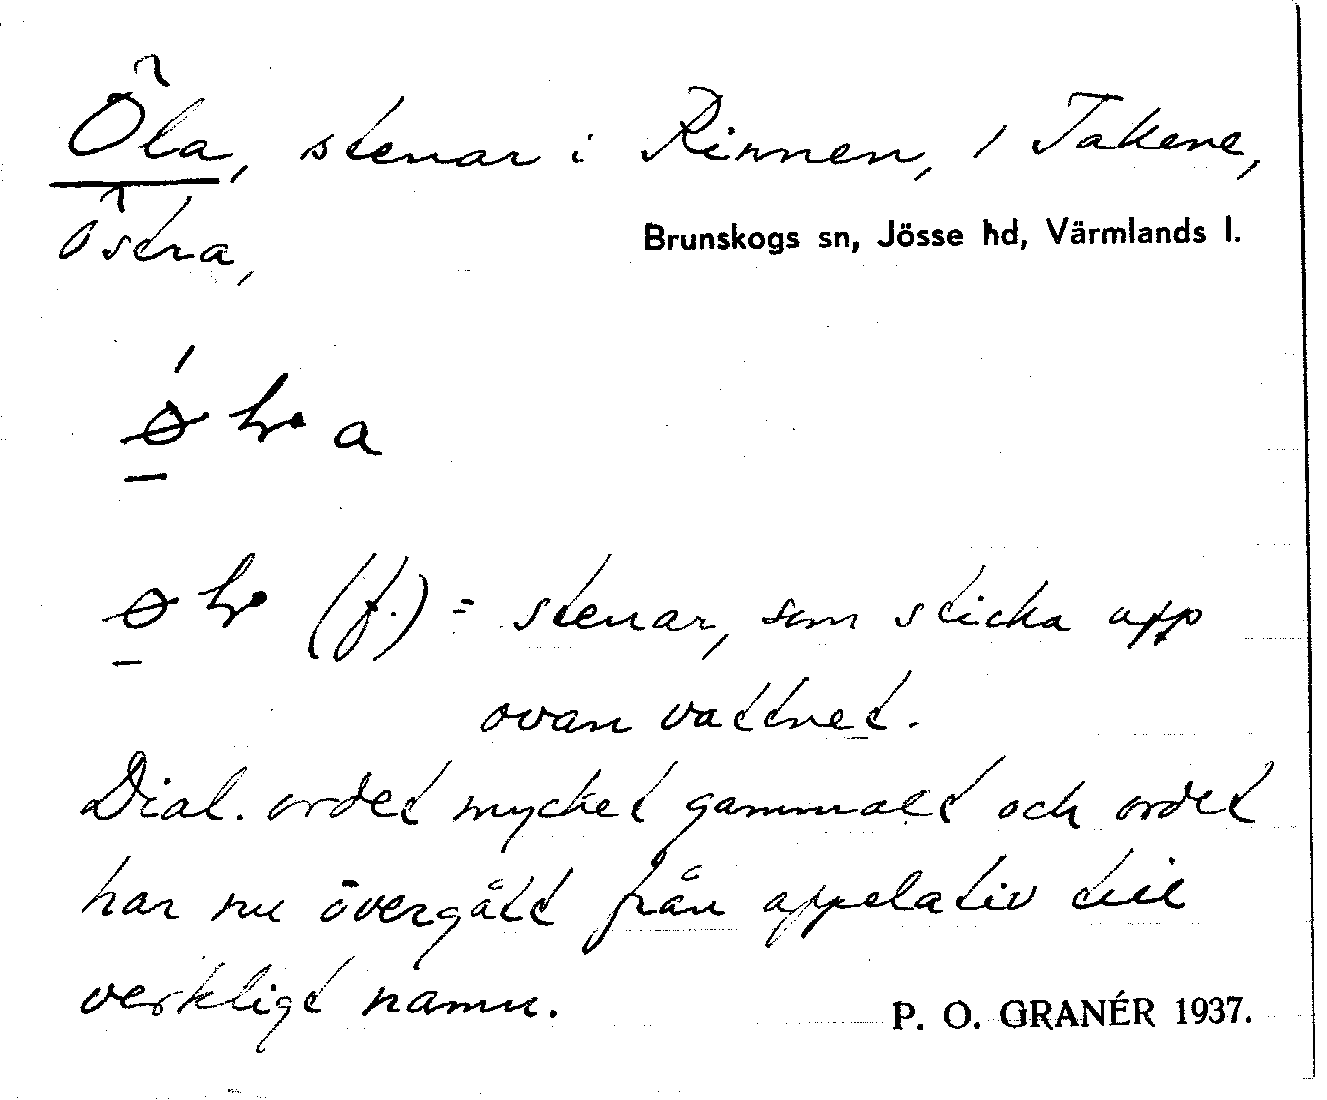 Öla, stenar i Rinnen, 1 Takene,
Östra,
Brunskogs sn, Jösse hd, Värmlands l.
(f.) = stenar, som sticka upp
ovan vattnet.
Dial. ordet mycket gammalt och ordet
har nu övergått från appelativ till
verkligt namn.
P. O. GRANÉR 1937.